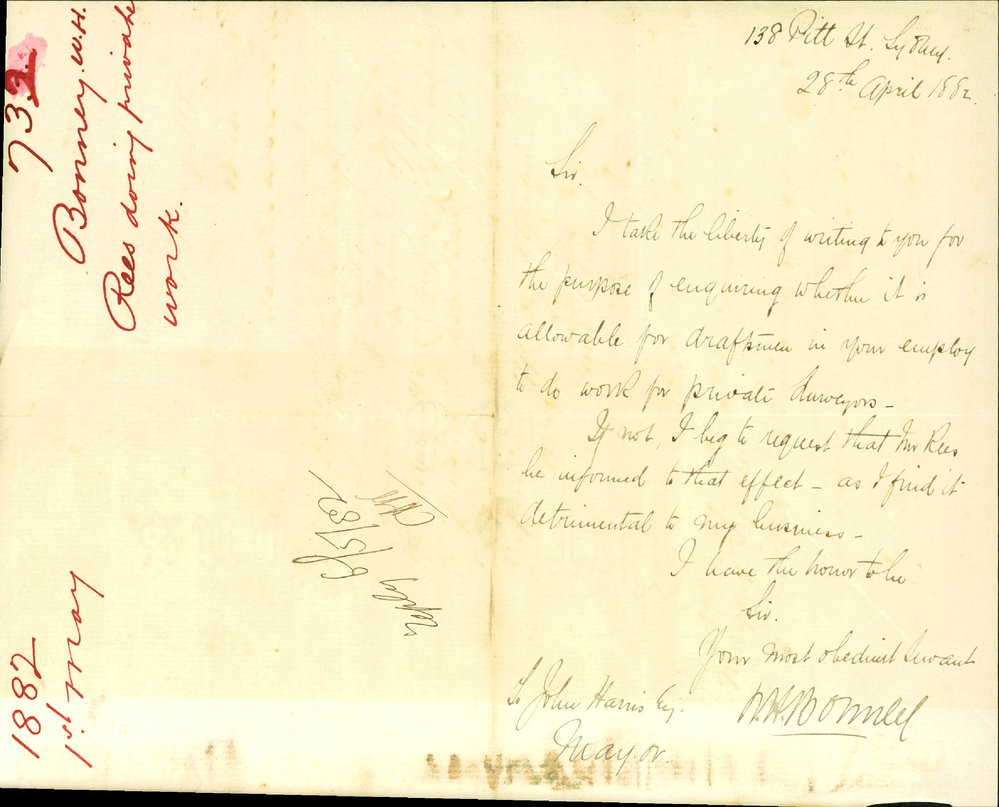 732
Bonney. W. H.
Rees doing private
work.
1882
1st May
6/5/82
138 Pitt St. Sydney.
28th April 1882.
Sir.
I take the liberty of writing to you for
the purpose of enquiring whether it is
allowable for draftsmen in your employ
to do work for private Surveyors —
If not, I beg to request that Mr Rees
be informed to that effect — as I find it
detrimental to my business —
I have the honor to be
Sir.
Your most obedient Servant
W. H. Bonney
To John Harris Esq.
Mayor.